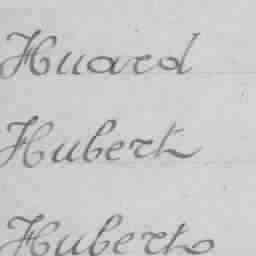 Huard
Hubert
Hubert